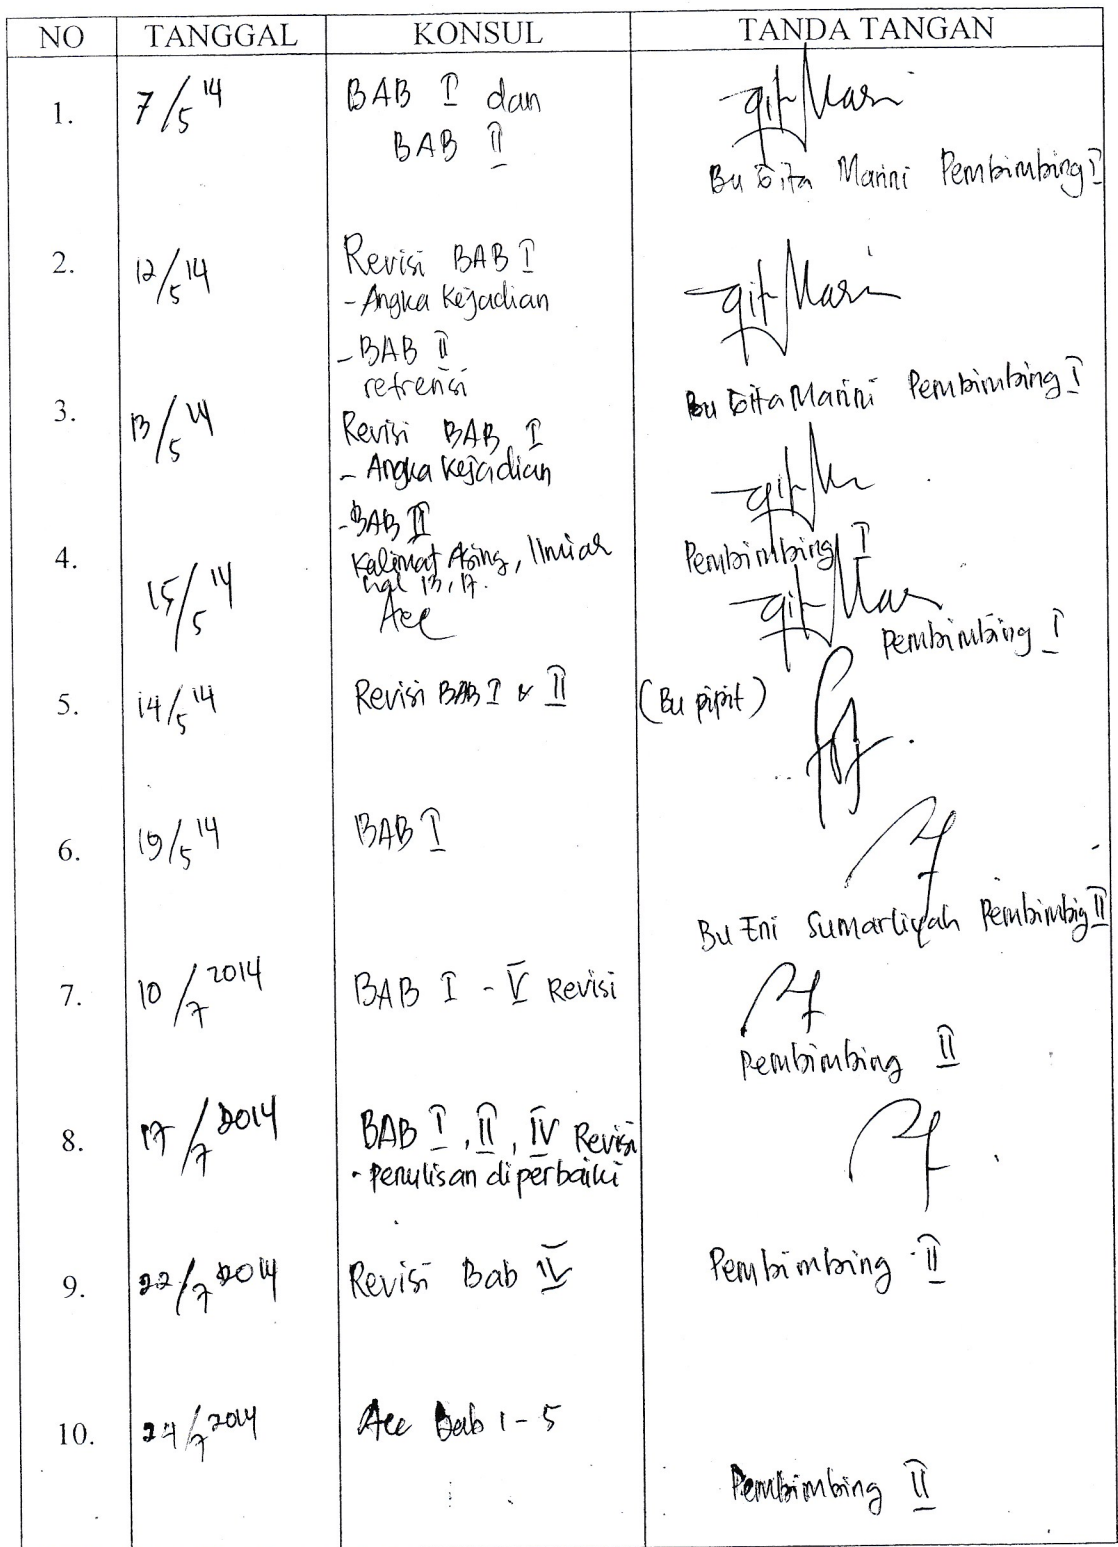 NO TANGGAL KONSUL TANDA TANGAN
1. 7/5 14 BAB I dan
BAB II
Bu Gita Marini Pembimbing I
2. 12/5 14 Revisi BAB I
- Angka Kejadian
- BAB II
refrensi
Bu Gita Marini Pembimbing I
3. 13/5 14 Revisi BAB I
- Angka Kejadian
- BAB II
Kalimat Asing, Ilmiah
hal 13, 17.
Pembimbing I
4. 15/5 14 Acc
Pembimbing I
5. 14/5 14 Revisi BAB I & II (Bu pipit)
6. 19/5 14 BAB I
Bu Eni Sumarliyah Pembimbig II
7. 10/7 2014 BAB I - V Revisi
Pembimbing II
8. 17/7 2014 BAB I, II, IV Revisi
- Penulisan diperbaiki
Pembimbing II
9. 22/7 2014 Revisi Bab IV
10. /7 2014 Acc Bab 1 - 5
Pembimbing II